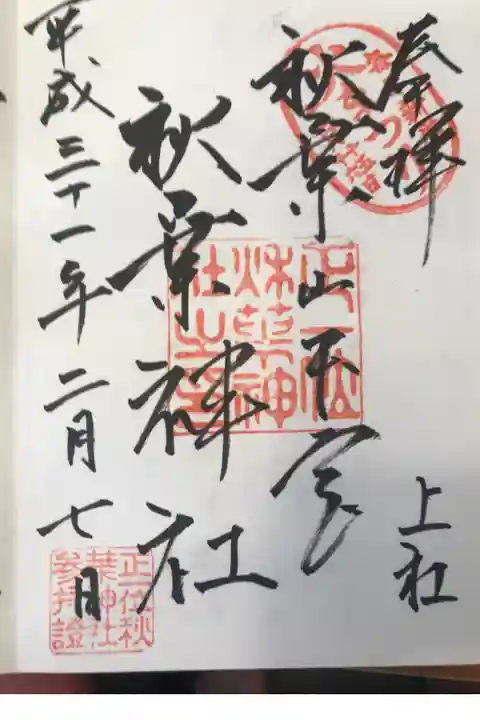 奉拝
上社
秋葉山本宮
秋葉神社
平成三十一年二月七日
正一位
秋葉神
社之璽
正一位秋
葉神社
参拝證